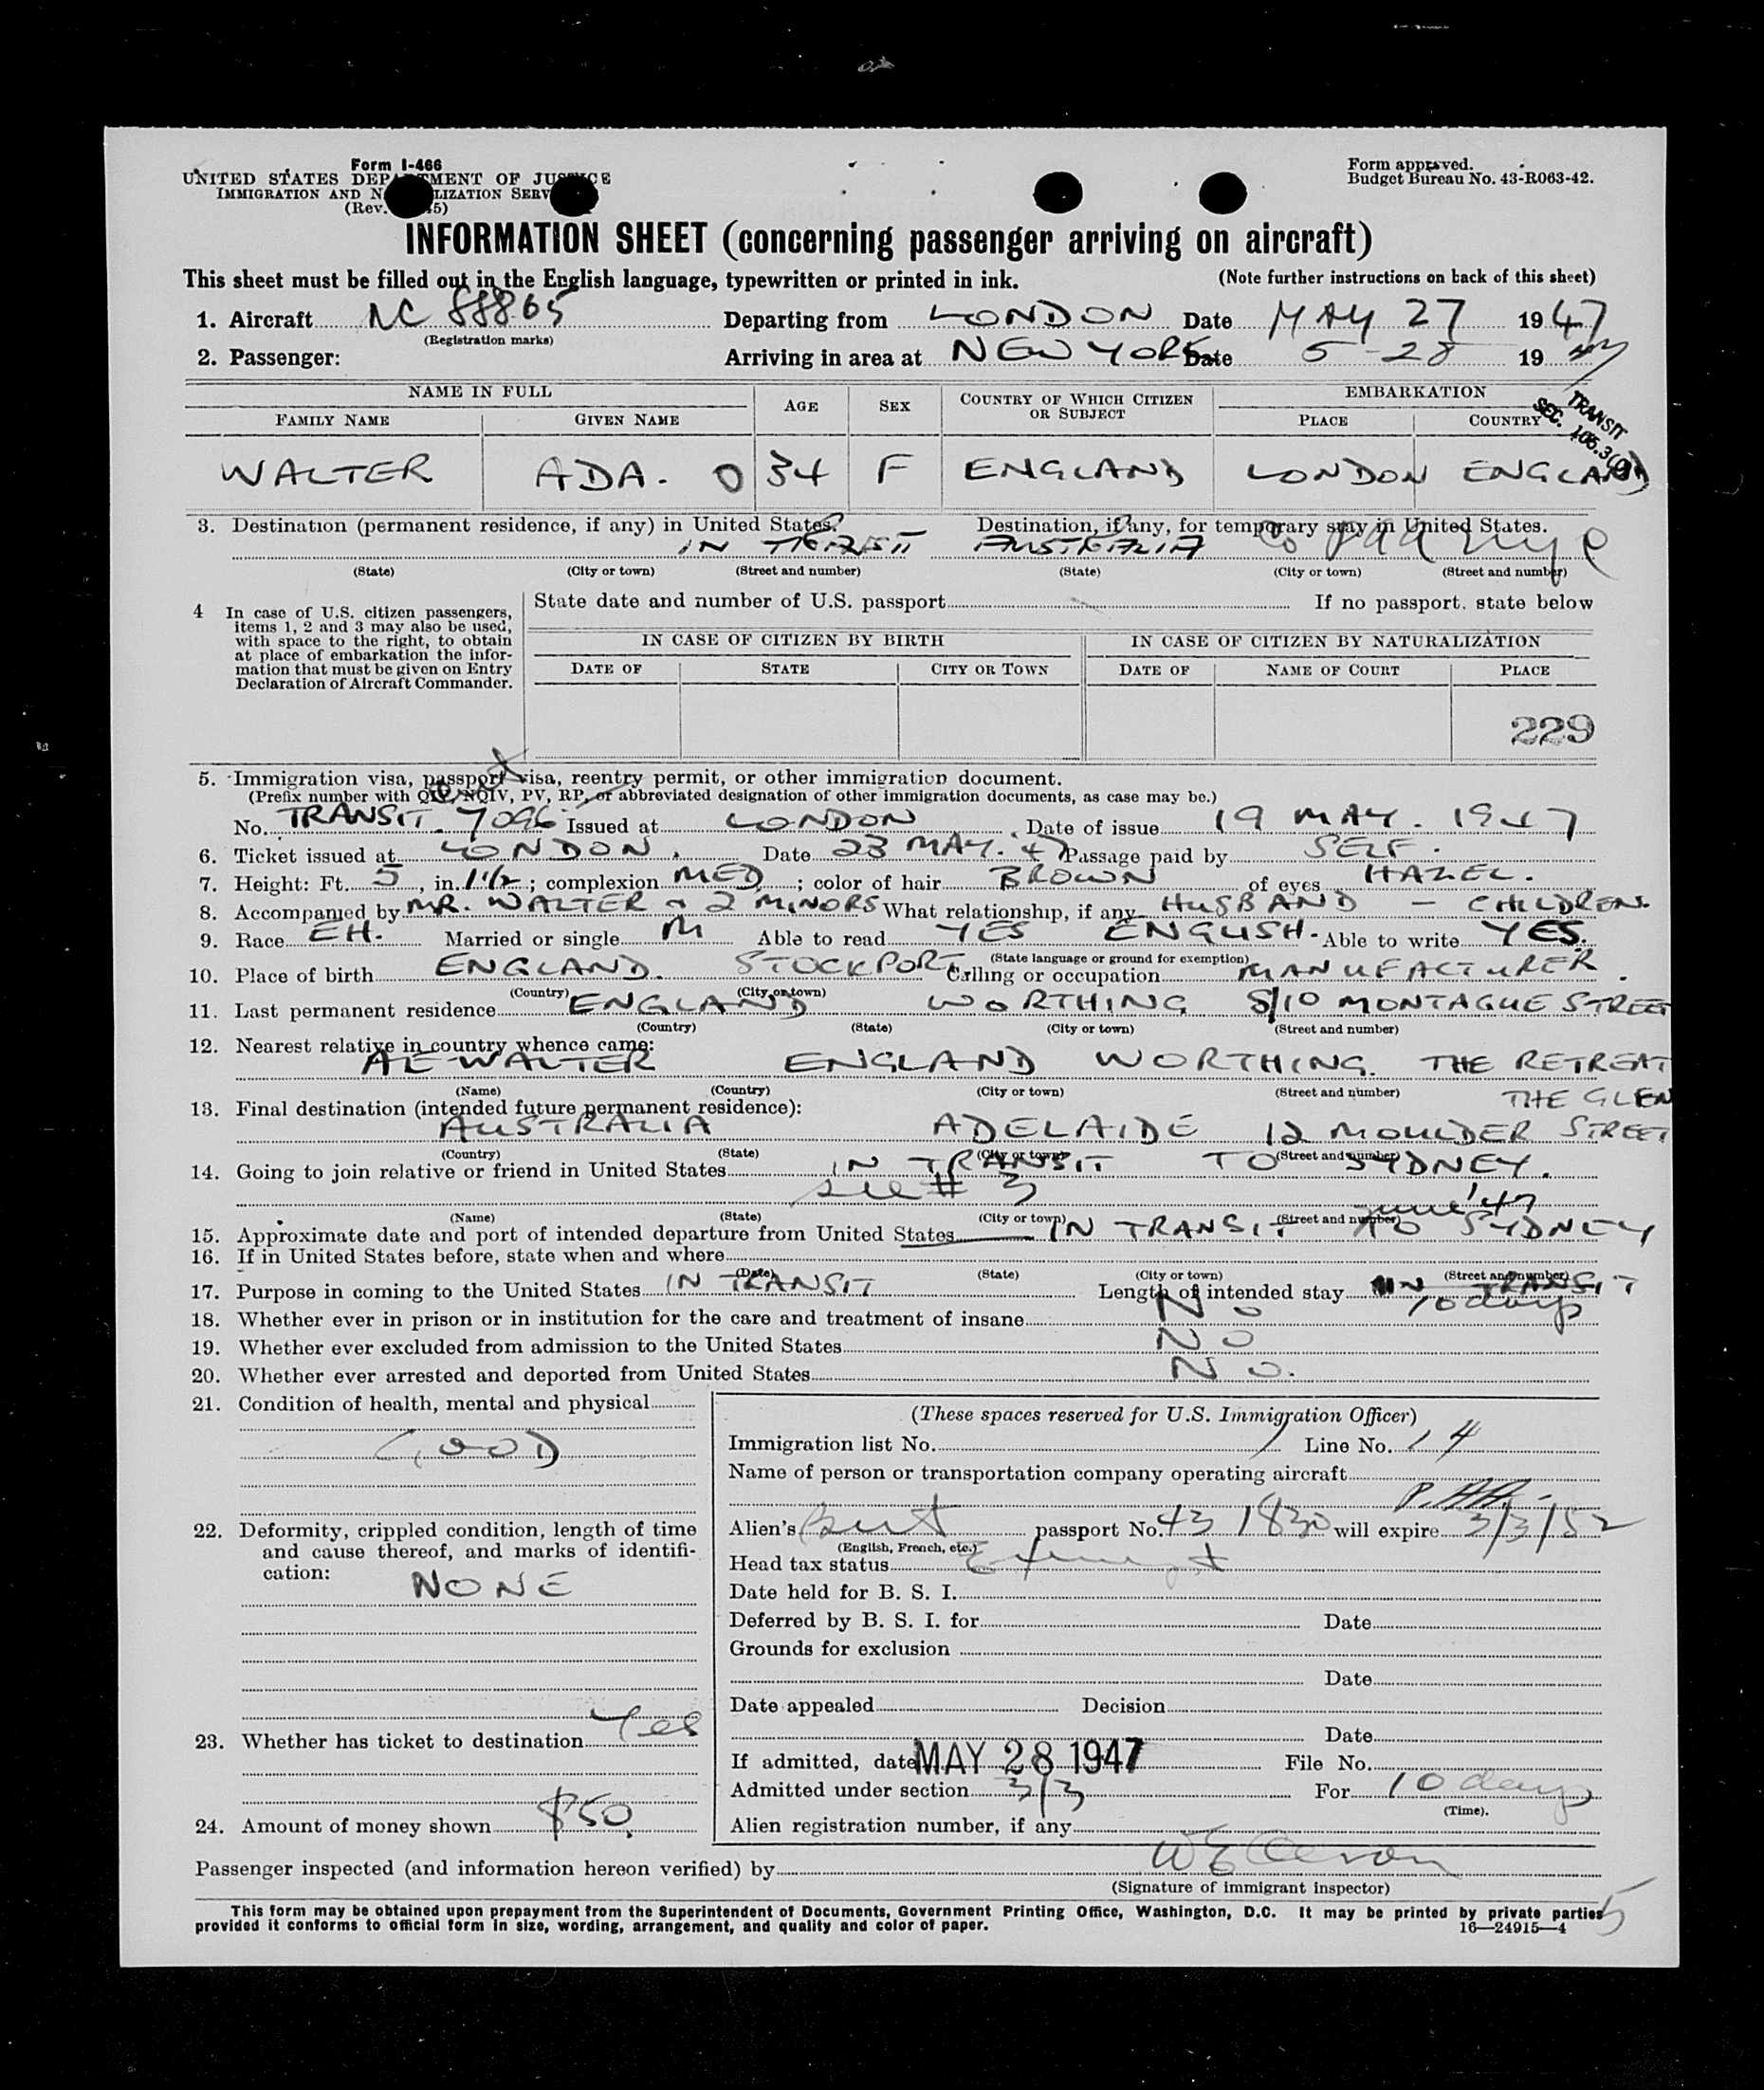 Form I-466
UNITED STATES DEPARTMENT OF JUSTICE
IMMIGRATION AND NATURALIZATION SERVICE
(Rev. 45)
Form approved.
Budget Bureau No. 43-R063-42.
INFORMATION SHEET (concerning passenger arriving on aircraft)
This sheet must be filled out in the English language, typewritten or printed in ink. (Note further instructions on back of this sheet)
1. Aircraft NC 88865 Departing from LONDON Date MAY 27 1947
(Registration marks)
2. Passenger: Arriving in area at NEW YORK Date 5-28 19 47
NAME IN FULL AGE SEX COUNTRY OF WHICH CITIZEN OR SUBJECT EMBARKATION
FAMILY NAME GIVEN NAME PLACE COUNTRY
TRANSIT
SEC. 105.3
WALTER ADA. O 34 F ENGLAND LONDON ENGLAND
3. Destination (permanent residence, if any) in United States. Destination, if any, for temporary stay in United States.
IN TRANSIT AUSTRALIA
(State) (City or town) (Street and number) (State) (City or town) (Street and number)
4 In case of U.S. citizen passengers, items 1, 2 and 3 may also be used, with space to the right, to obtain at place of embarkation the information that must be given on Entry Declaration of Aircraft Commander.
State date and number of U.S. passport If no passport, state below
IN CASE OF CITIZEN BY BIRTH IN CASE OF CITIZEN BY NATURALIZATION
DATE OF STATE CITY OR TOWN DATE OF NAME OF COURT PLACE
229
5. Immigration visa, passport visa, reentry permit, or other immigration document.
(Prefix number with QIV, NQIV, PV, RP, or abbreviated designation of other immigration documents, as case may be.)
No. TRANSIT. 7096 Issued at LONDON Date of issue 19 MAY. 1947
6. Ticket issued at LONDON. Date 23 MAY. 47 Passage paid by SELF.
7. Height: Ft. 5, in. 1½; complexion MED; color of hair BROWN of eyes HAZEL.
8. Accompanied by MR. WALTER & 2 MINORS What relationship, if any HUSBAND - CHILDREN.
9. Race EH. Married or single M Able to read YES ENGLISH. Able to write YES.
(State language or ground for exemption)
10. Place of birth ENGLAND. STOCKPORT Calling or occupation MANUFACTURER.
(Country) (City or town)
11. Last permanent residence ENGLAND WORTHING 8/10 MONTAGUE STREET
(Country) (State) (City or town) (Street and number)
12. Nearest relative in country whence came:
AE WALTER ENGLAND WORTHING. THE RETREAT
(Name) (Country) (City or town) (Street and number) THE GLEN
13. Final destination (intended future permanent residence):
AUSTRALIA ADELAIDE 12 MOULDER STREET
(Country) (State) (City or town) (Street and number)
14. Going to join relative or friend in United States IN TRANSIT TO SYDNEY.
see # 3
(Name) (State) (City or town) (Street and number)
June '47
15. Approximate date and port of intended departure from United States IN TRANSIT TO SYDNEY
16. If in United States before, state when and where
(Date) (State) (City or town) (Street and number)
17. Purpose in coming to the United States IN TRANSIT Length of intended stay IN TRANSIT
10 days
18. Whether ever in prison or in institution for the care and treatment of insane No
19. Whether ever excluded from admission to the United States No
20. Whether ever arrested and deported from United States No.
21. Condition of health, mental and physical
GOOD
22. Deformity, crippled condition, length of time and cause thereof, and marks of identification:
NONE
23. Whether has ticket to destination Yes
24. Amount of money shown $50
(These spaces reserved for U.S. Immigration Officer)
Immigration list No. 1 Line No. 14
Name of person or transportation company operating aircraft
P.AA.
Alien's Brit passport No. 431830 will expire 3/3/52
(English, French, etc.)
Head tax status Exempt
Date held for B. S. I.
Deferred by B. S. I. for Date
Grounds for exclusion
Date
Date appealed Decision
Date
If admitted, date MAY 28 1947 File No.
Admitted under section 3/3 For 10 days
(Time).
Alien registration number, if any
Passenger inspected (and information hereon verified) by
(Signature of immigrant inspector)
This form may be obtained upon prepayment from the Superintendent of Documents, Government Printing Office, Washington, D.C. It may be printed by private parties
provided it conforms to official form in size, wording, arrangement, and quality and color of paper. 16—24915—4
5